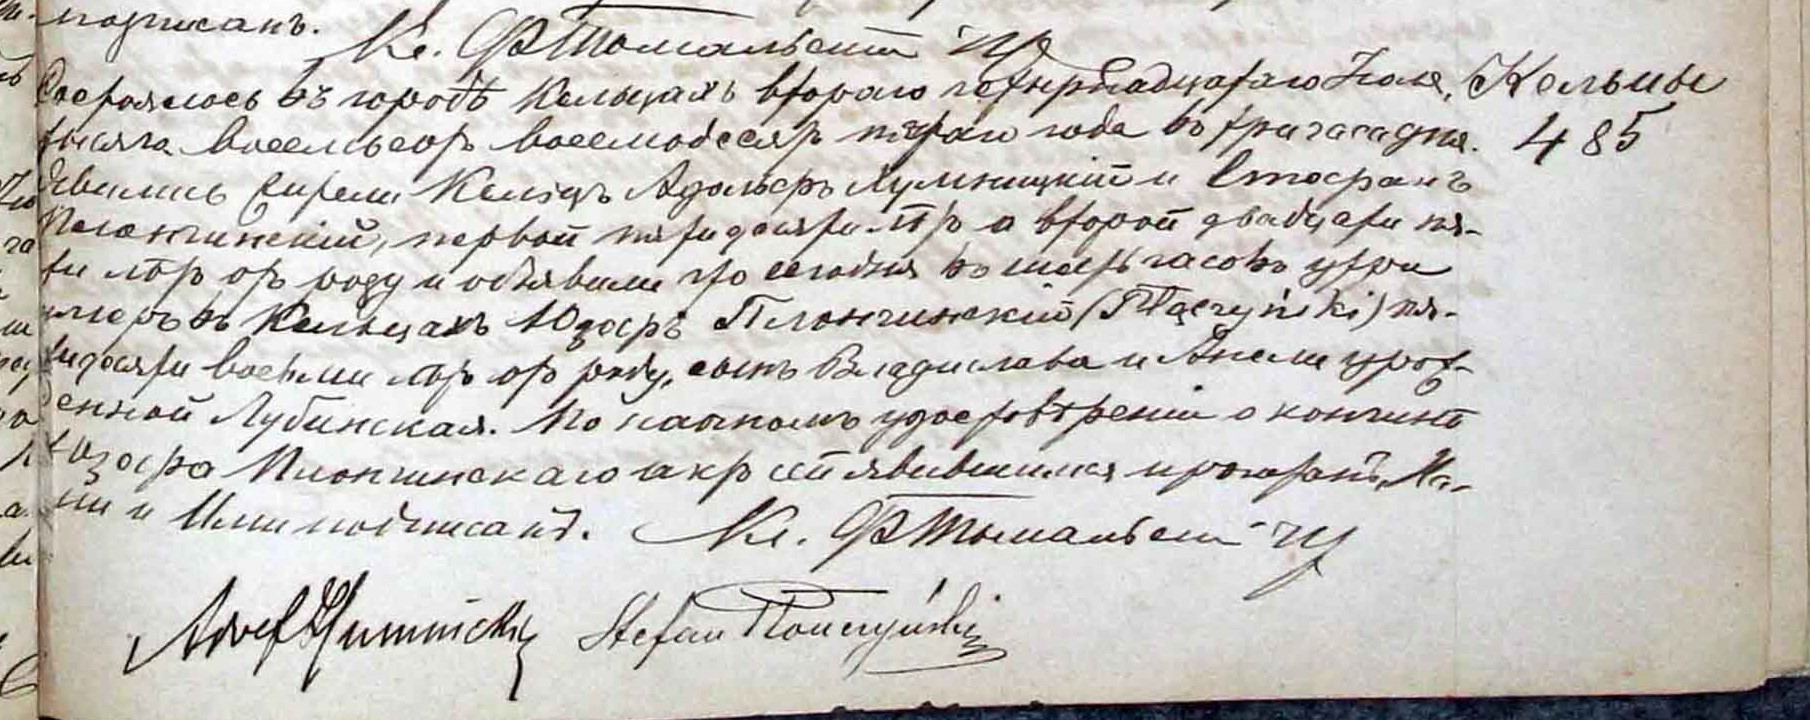 подписанъ.
Кс. Ѳ
Кельцы
485
Состоялось въ городѣ Кельцахъ втораго четырнадцатаго Іюля,
тысяча восемьсотъ восемьдесятъ пятаго года въ три часа дня.
Явились жители Келецъ Адольфъ и Стефанъ
первой пятидесяти лѣтъ а второй двадцати пя-
ти лѣтъ отъ роду и объявили что сегодня въ шесть часовъ утра
умеръ въ Кельцахъ Юзефъ Плончинскій (Płączyński) пя-
тидесяти восьми лѣтъ отъ роду, сынъ Владислава и Анели урож-
енной Лубинская. По настномъ удостовѣреніи о кончинѣ
Юзефа Плончинскаго актъ сей явившимся прочитанъ, На-
ми и Ими подписанъ. Кс. Ѳ
Adolf Stefan Płonczyński